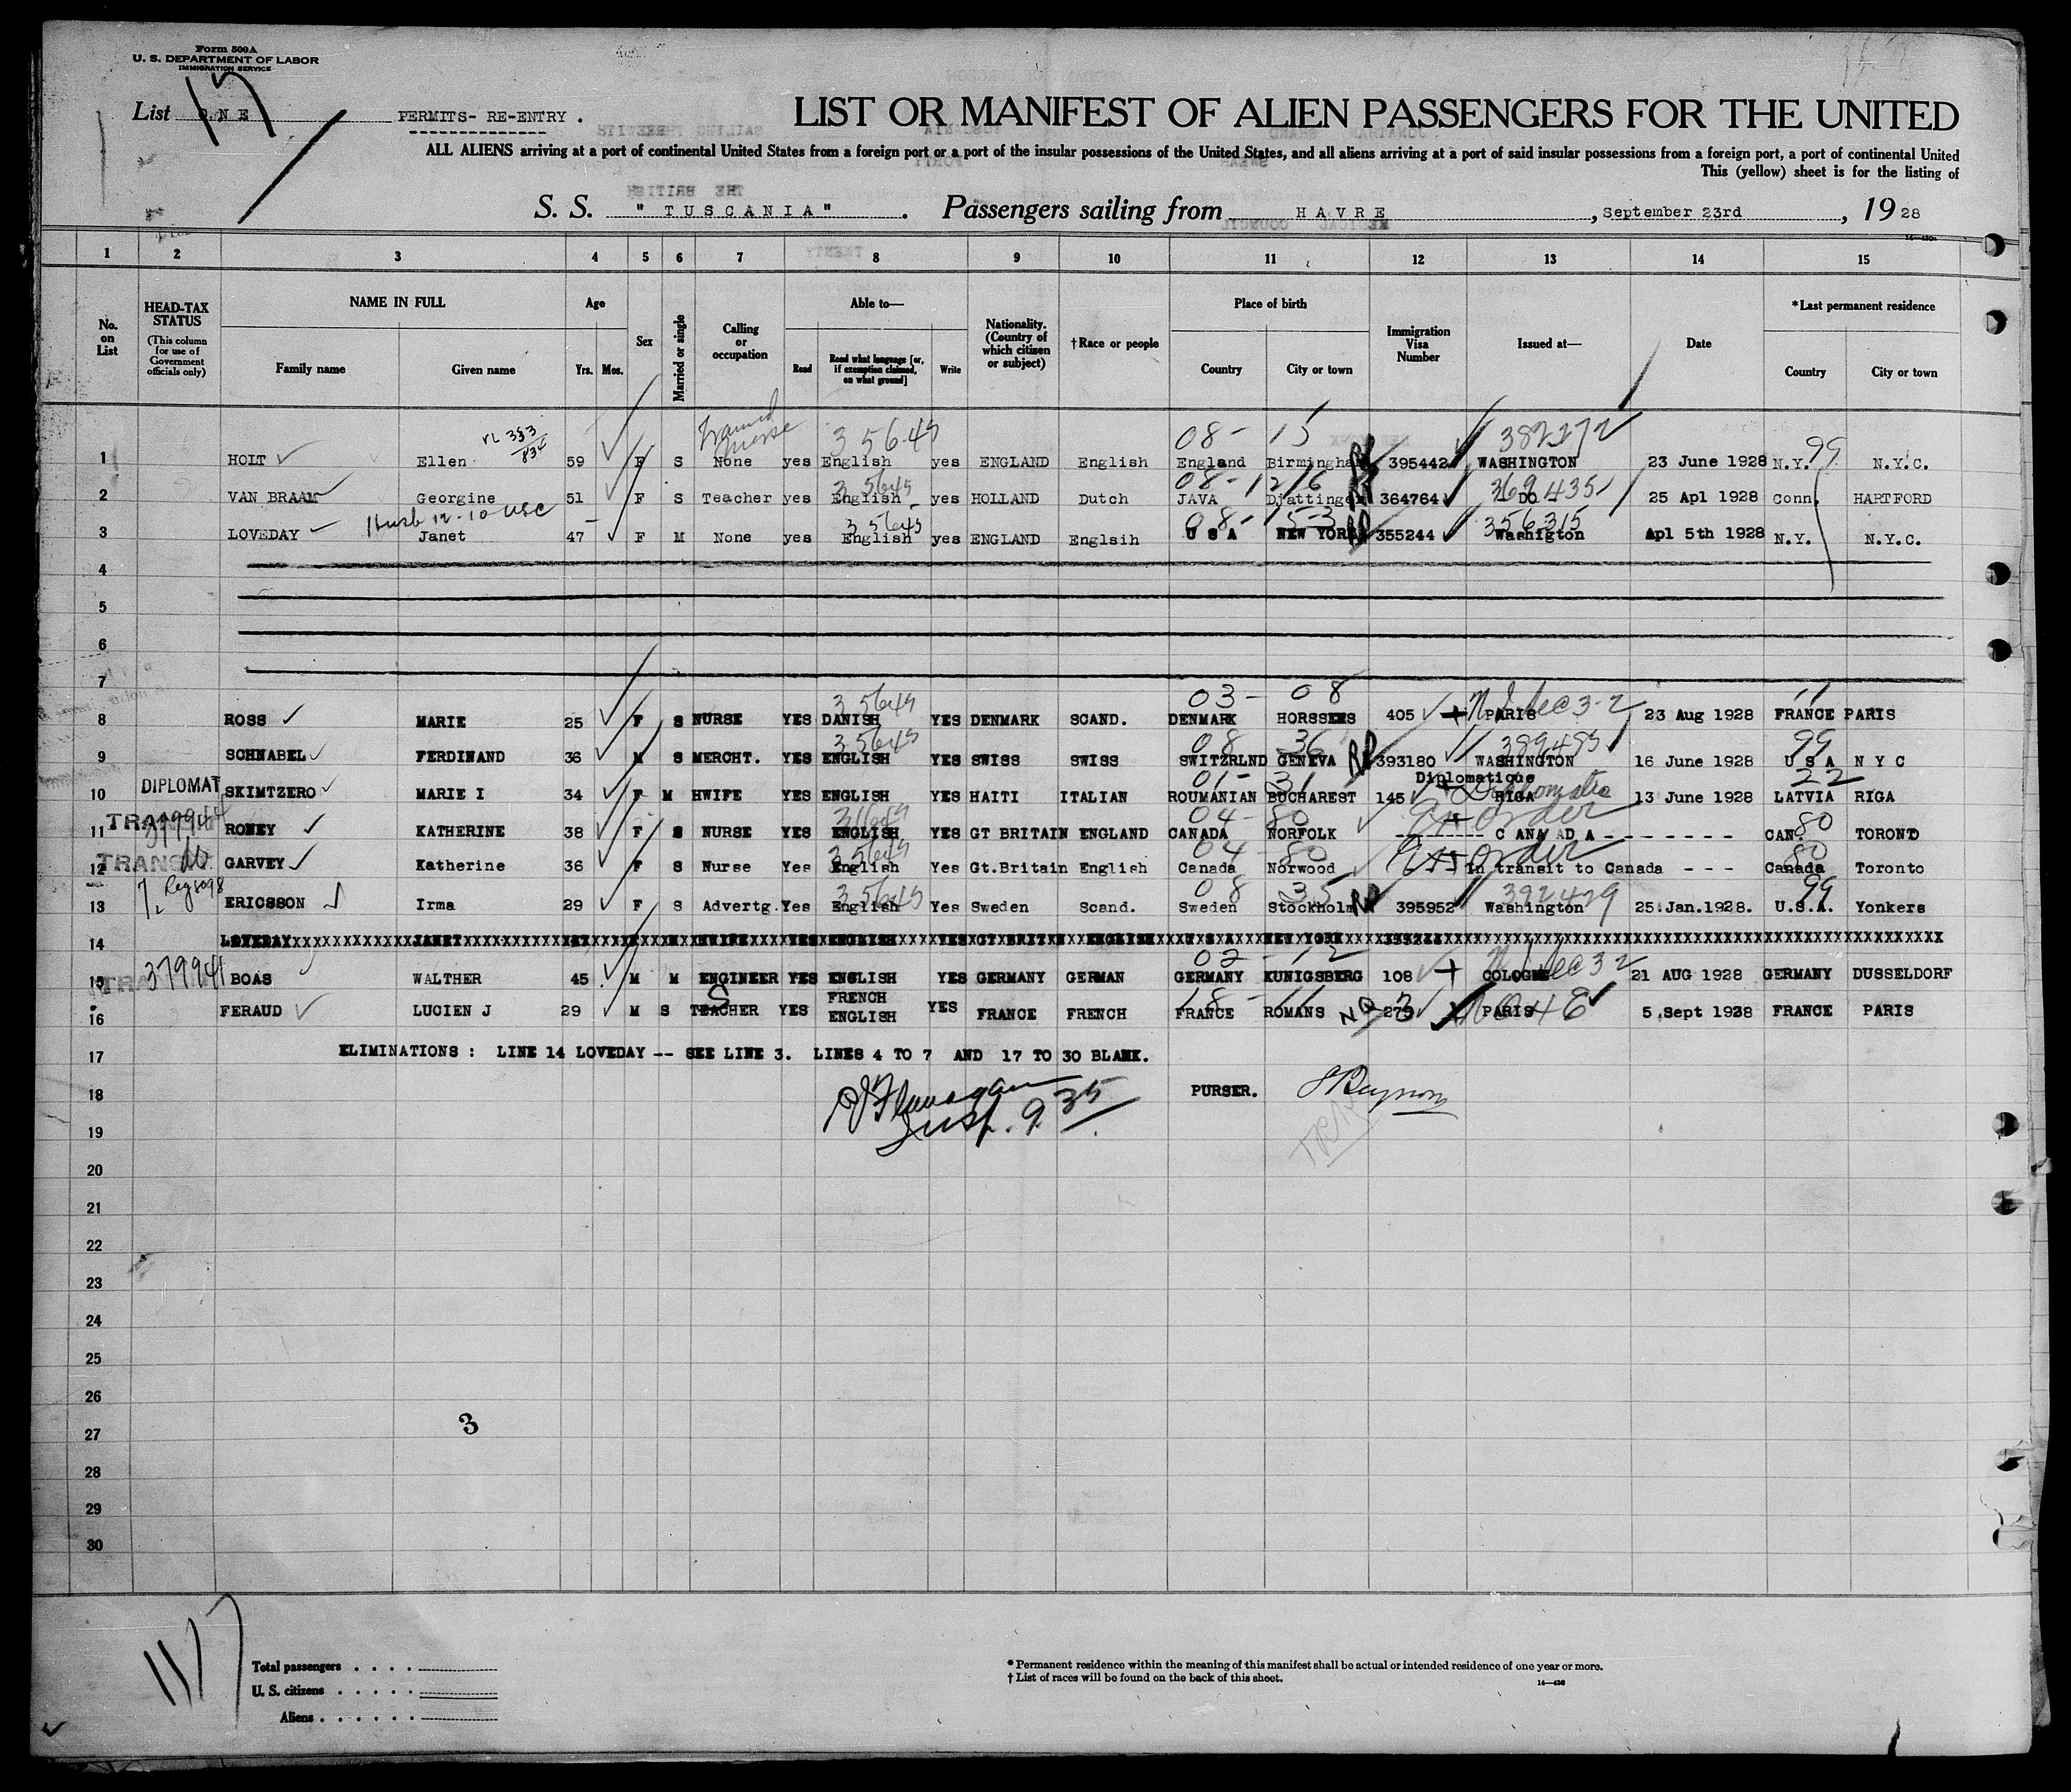 Form 500A
U. S. DEPARTMENT OF LABOR
IMMIGRATION SERVICE
List ONE PERMITS- RE-ENTRY .
17
LIST OR MANIFEST OF ALIEN PASSENGERS FOR THE UNITED
ALL ALIENS arriving at a port of continental United States from a foreign port or a port of the insular possessions of the United States, and all aliens arriving at a port of said insular possessions from a foreign port, a port of continental United
This (yellow) sheet is for the listing of
S. S. " TUSCANIA" . Passengers sailing from HAVRE , September 23rd , 19 28
1 2 3 4 5 6 7 8 9 10 11 12 13 14 15
No. on List
HEAD-TAX STATUS (This column for use of Government officials only)
NAME IN FULL Family name Given name
Age Yrs. Mos.
Sex
Married or single
Calling or occupation
Able to— Read Read what language [or, if exemption claimed, on what ground] Write
Nationality. (Country of which citizen or subject)
†Race or people
Place of birth Country City or town
Immigration Visa Number
Issued at—
Date
*Last permanent residence Country City or town
Trained nurse 35645 08- 15 382272 99
1 HOLT Ellen 59 F S None yes English yes ENGLAND English England Birmingham 395442 WASHINGTON 23 June 1928 N.Y. N.Y.C.
35645 08-1216 369435
2 VAN BRAAM Georgine 51 F S Teacher yes English yes HOLLAND Dutch JAVA Djattinger 364764 - DO - 25 Apl 1928 Conn. HARTFORD
Husb 12-10 USC 35645 08- 53 356315
3 LOVEDAY Janet 47 F M None yes English yes ENGLAND Englsih U S A NEW YORK 355244 Washigton Apl 5th 1928 N.Y. N.Y.C.
4
5
6
7
35645 03- 08 Sec 3-2 11
8 ROSS MARIE 25 F S NURSE YES DANISH YES DENMARK SCAND. DENMARK HORSSENS 405 PARIS 23 Aug 1928 FRANCE PARIS
35645 08 36 389485 99
9 SCHNABEL FERDINAND 36 M S MERCHT. YES ENGLISH YES SWISS SWISS SWITZRLND GENEVA RP 393180 WASHINGTON 16 June 1928 U S A N Y C
01- 31 Diplomatique Diplomatic 22
10 DIPLOMAT SKIMTZERO MARIE I 34 F M HWIFE YES ENGLISH YES HAITI ITALIAN ROUMANIAN BUCHAREST 145 RIGA 13 June 1928 LATVIA RIGA
04- 80 order 80
11 ROMEY KATHERINE 38 F S NURSE YES ENGLISH YES GT BRITAIN ENGLAND CANADA NORFOLK -------- C ANA AD A - - - - - - - - CAN. TORONTO
35645 04 80 order 80
12 TRANSIT GARVEY Katherine 36 F S Nurse Yes English Yes Gt.Britain English Canada Norwood - - In transit to Canada - - - Canada Toronto
35645 08 35 392429 99
13 ERICSSON Irma 29 F S Advertg. Yes English Yes Sweden Scand. Sweden Stockholm RP 395952 Washington 25.Jan.1928. U.S.A. Yonkers
14 LOVEDAY JANET 47 F M HWIFE YES ENGLISH YES GT BRITN ENGLISH U S A NEW YORK 355244
379941 02- 12 Sec 3 2
15 BOAS WALTHER 45 M M ENGINEER YES ENGLISH YES GERMANY GERMAN GERMANY KUNIGSBERG 108 COLOGNE 21 AUG 1928 GERMANY DUSSELDORF
16 FERAUD LUCIEN J 29 M S TEACHER YES FRENCH ENGLISH YES FRANCE FRENCH FRANCE ROMANS NQ PARIS 5 Sept 1928 FRANCE PARIS
17 ELIMINATIONS : LINE 14 LOVEDAY -- SEE LINE 3. LINES 4 TO 7 AND 17 TO 30 BLANK.
18 PURSER.
Insp. 935
19
20
21
22
23
24
25
26
27
3
28
29
30
Total passengers . . . .
U. S. citizens . . . . .
Aliens . . . . . .
* Permanent residence within the meaning of this manifest shall be actual or intended residence of one year or more.
† List of races will be found on the back of this sheet.
14—430